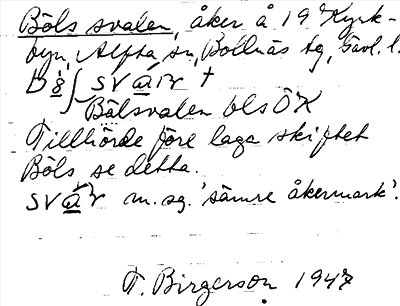 Böls svalen, åker å 19 Kyrk-
byn, Alfta sn, Bollnäs tg, Gävl. l.
Bölsvalen bls ÖK
Tillhörde före laga skiftet
Böls se detta.
m. sg. 'sämre åkermark'.
T. Birgerson 1947